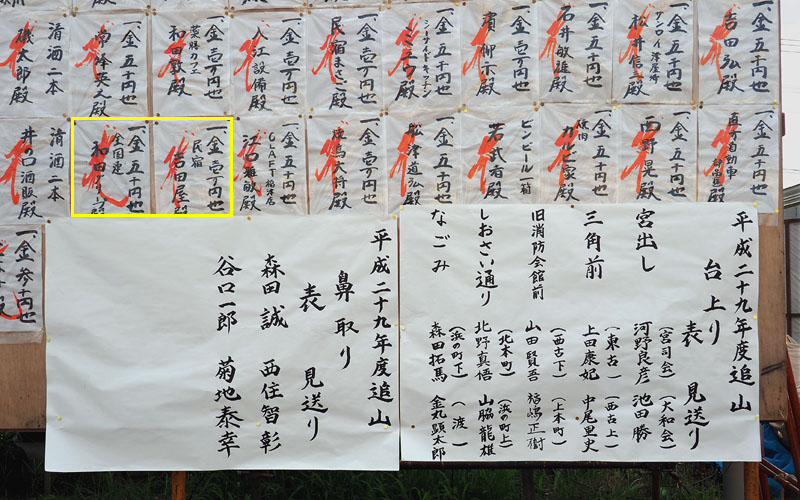 一金五千円也
吉田弘殿
一金五千円也
松井信三殿
一金五千円也
石井敏雄殿
一金五千円也
濱柳示殿
一金五千円也
シーサイドキッチン
一金壱万円也
民宿まさご殿
一金壱万円也
入江設備殿
一金壱万円也
薬膳カフェ
一金五千円也
清酒二本
磯太郎殿
直方自動車
一金五千円也
西野晃殿
一金五千円也
カルビ家殿
ビンビール一箱
若武者殿
一金五千円也
一金五千円也
焼鳥大将殿
一金五千円也
一金壱万円也
民宿
吉田屋殿
一金五千円也
全国連
清酒二本
井の口酒販殿
一金参千円也
平成二十九年度追山
台上り
表 見送り
(宮司会) (大和会)
宮出し 河野良彦 池田勝
(東古) (西古上)
三角前 上田康妃 中尾里史
(西古下) (上本町)
旧消防会館前 山田賢吾 福嶋正樹
(北本町) (浜の町上)
しおさい通り 北野真悟 山脇龍雄
(浜の町下) (波)
なごみ 森田拓馬 金丸顕太郎
平成二十九年度追山
鼻取り
表 見送り
森田誠 西住智彰
谷口一郎 菊地泰幸